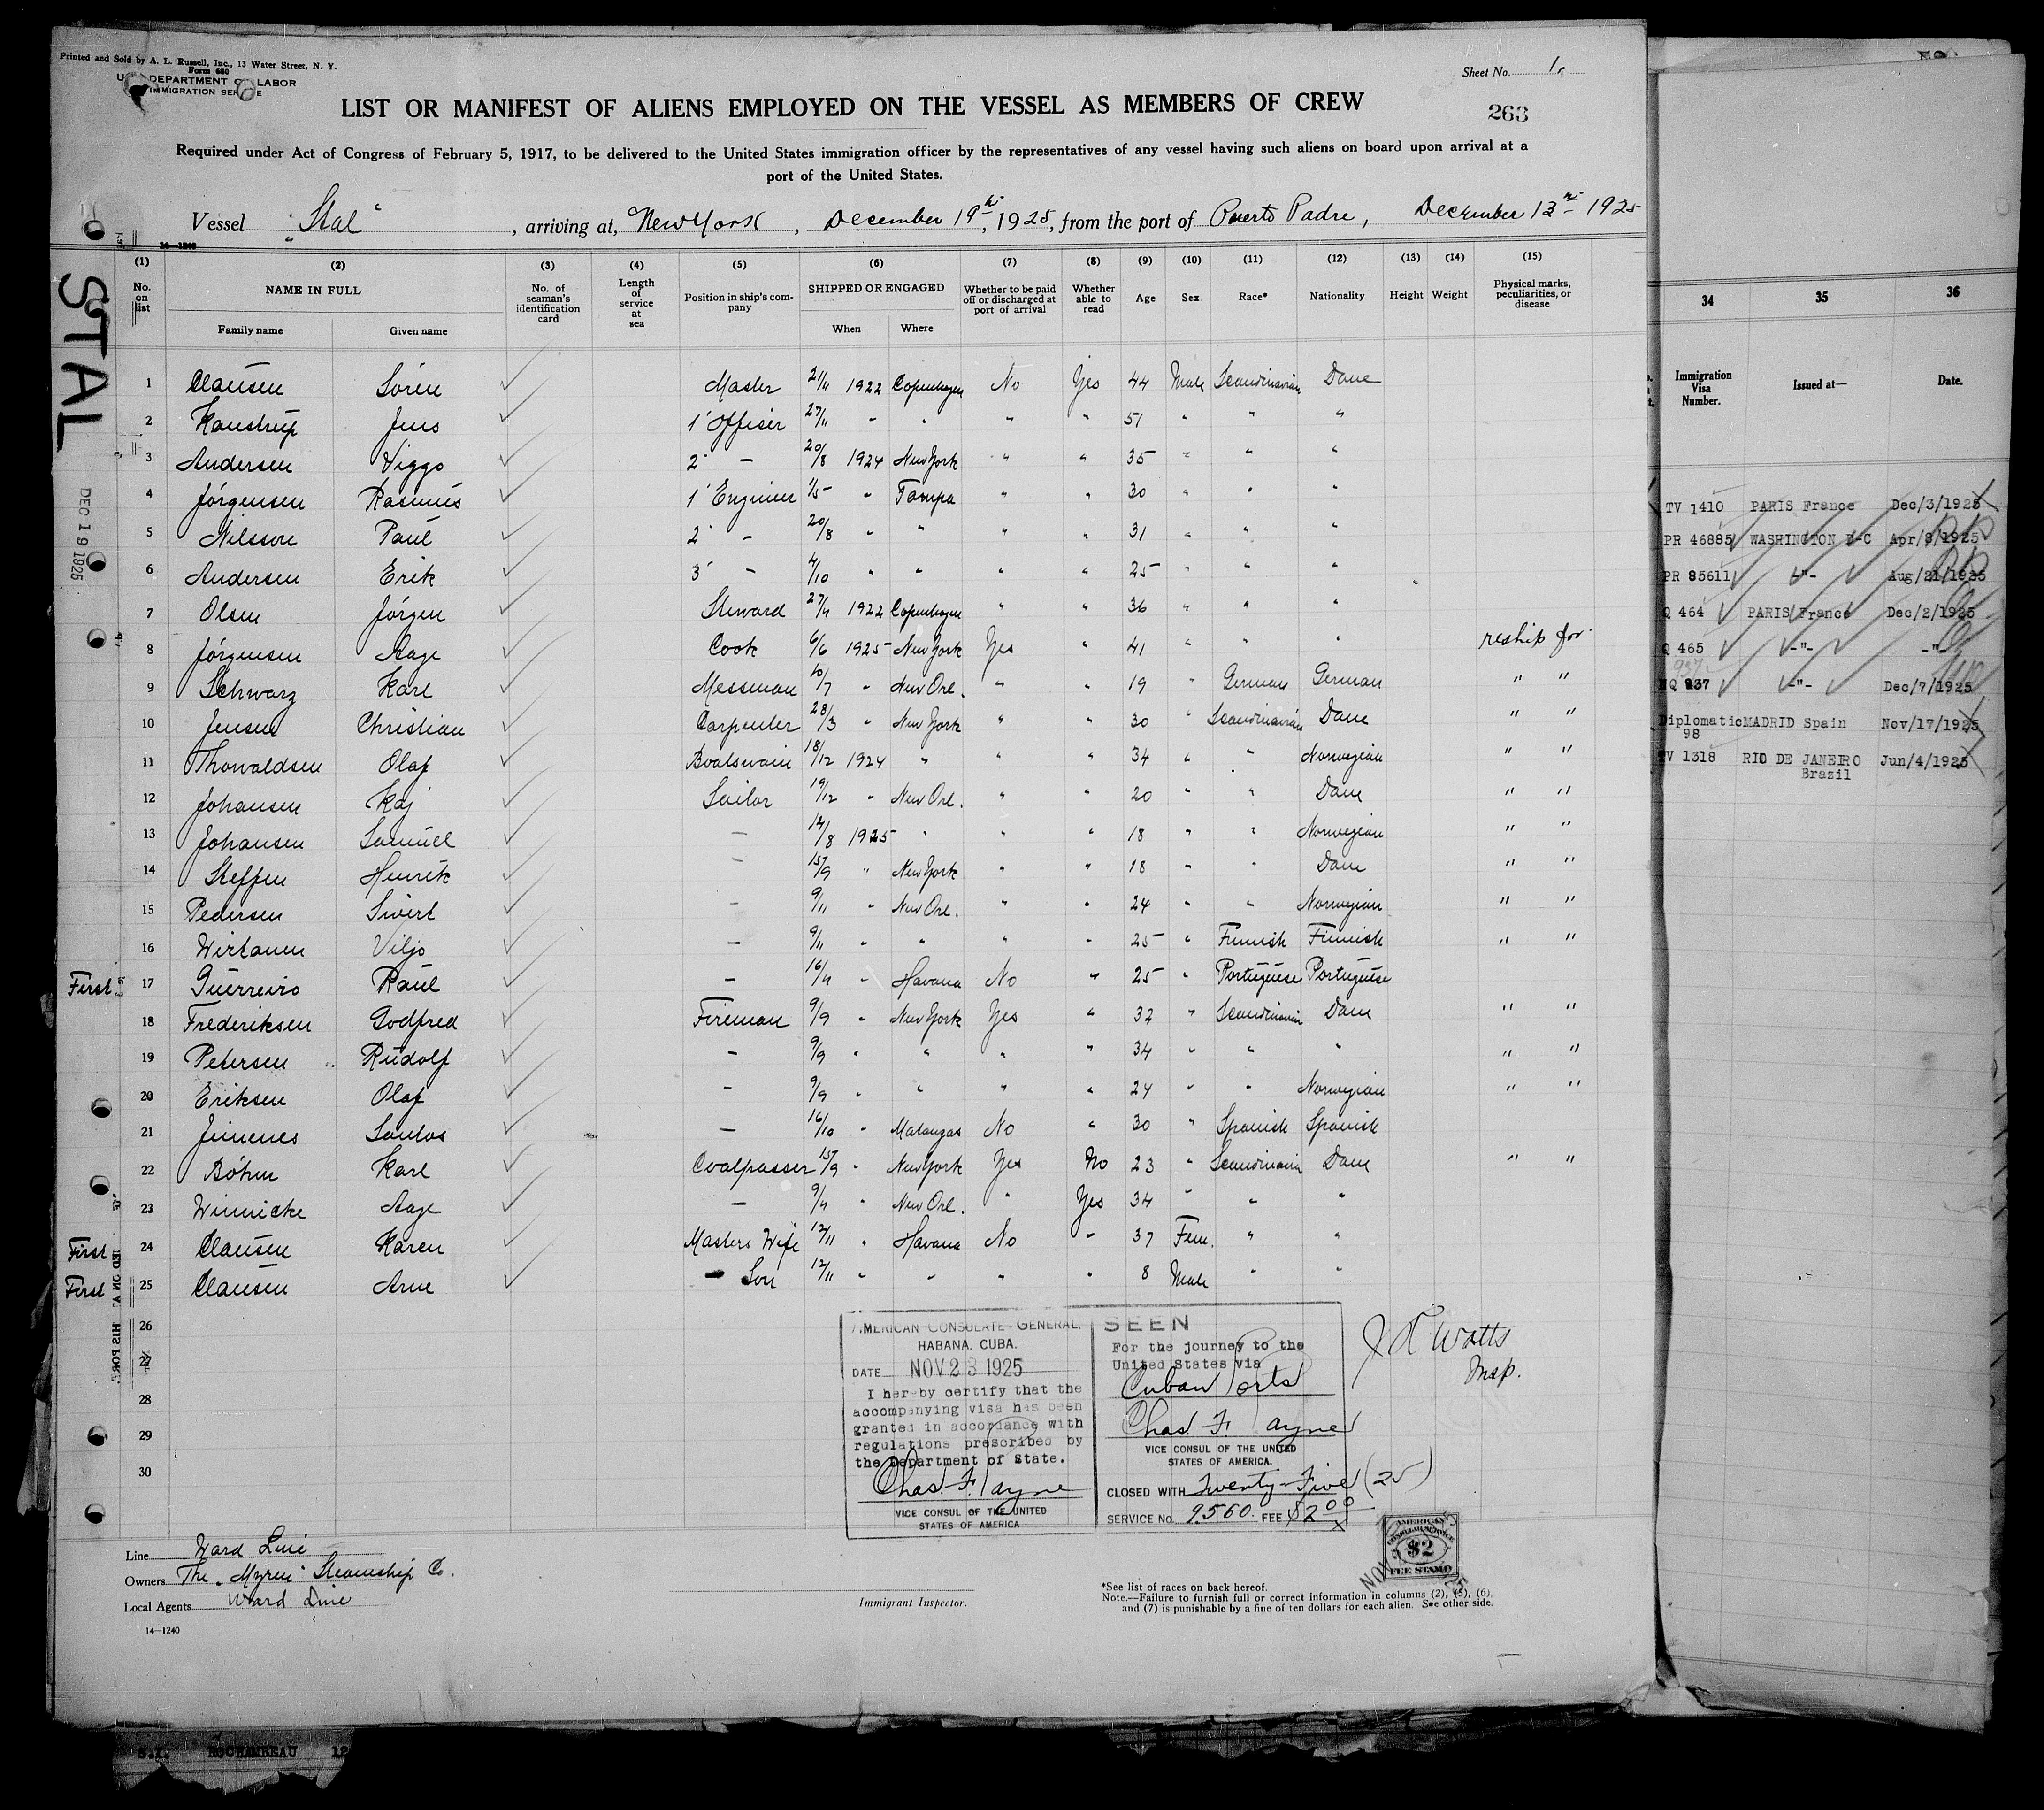 Printed and Sold by A. L. Russell, Inc., 13 Water Street, N. Y.
Form 680
DEPARTMENT OF LABOR
IMMIGRATION SERVICE
Sheet No. 1,
LIST OR MANIFEST OF ALIENS EMPLOYED ON THE VESSEL AS MEMBERS OF CREW
263
Required under Act of Congress of February 5, 1917, to be delivered to the United States immigration officer by the representatives of any vessel having such aliens on board upon arrival at a
port of the United States.
Vessel "Stal", arriving at, New York, December 19th, 1925, from the port of Puerto Padre, December 13th 1925
STAL
DEC 19 1925
(1) (2) (3) (4) (5) (6) (7) (8) (9) (10) (11) (12) (13) (14) (15)
No. on list
NAME IN FULL
Family name Given name
No. of seaman's identification card
Length of service at sea
Position in ship's company
SHIPPED OR ENGAGED
When Where
Whether to be paid off or discharged at port of arrival
Whether able to read
Age
Sex
Race*
Nationality
Height
Weight
Physical marks, peculiarities, or disease
1 Clausen Sören Master 2/11 1922 Copenhagen No Yes 44 Male Scandinavian Dane
2 Kaustrup Jens 1' Officer 27/11 " " " " 51 " " "
3 Andersen Viggo 2' - 20/8 1924 New York " " 35 " " "
4 Jörgensen Rasmus 1' Engineer 1/5 " Tampa " " 30 " " "
5 Nilsson Paul 2' - 20/8 " " " " 31 " " "
6 Andersen Erik 3' - 4/10 " " " " 25 " " "
7 Olsen Jörgen Steward 27/11 1922 Copenhagen " " 36 " " "
8 Jörgensen Aage Cook 6/6 1925 New York Yes " 41 " " " reship for
9 Schwarz Karl Messman 10/7 " New Orl. " " 19 " German German " "
10 Jensen Christian Carpenter 28/3 " New York " " 30 " Scandinavian Dane " "
11 Thorvaldsen Olaf Boatswain 18/12 1924 " " " 34 " " Norwegian " "
12 Johansen Kaj Sailor 19/12 " New Orl. " " 20 " " Dane " "
13 Johansen Samuel - 14/8 1925 " " " 18 " " Norwegian " "
14 Steffen Henrik - 15/9 " New York " " 18 " " Dane " "
15 Pedersen Sivert - 9/11 " New Orl. " " 24 " " Norwegian " "
16 Wirtanen Viljo - 9/11 " " " " 25 " Finnish Finnish " "
First 17 Guerreiro Raul - 16/11 " Havana No " 25 " Portuguese Portuguese
18 Frederiksen Godfred Fireman 9/9 " New York Yes " 32 " Scandinavian Dane " "
19 Petersen Rudolf - 9/9 " " " " 34 " " " " "
20 Eriksen Olaf - 9/9 " " " " 24 " " Norwegian " "
21 Jimenes Santos - 16/10 " Matanzas No " 30 " Spanish Spanish
22 Böhm Karl Coalpasser 15/9 " New York Yes No 23 " Scandinavian Dane " "
23 Winnicke Aage - 9/11 " New Orl. " Yes 34 " " "
First 24 Clausen Karen Masters Wife 12/11 " Havana No " 37 Fem. " "
First 25 Clausen Arne - Son 12/11 " " " " 8 Male " "
26
27
28
29
30
AMERICAN CONSULATE-GENERAL,
HABANA, CUBA.
DATE NOV 23 1925
I hereby certify that the
accompanying visa has been
granted in accordance with
regulations prescribed by
the Department of State.
Chas. F. Payne
VICE CONSUL OF THE UNITED
STATES OF AMERICA
SEEN
For the journey to the
United States via
Cuban Ports
Chas. F. Payne
VICE CONSUL OF THE UNITED
STATES OF AMERICA.
CLOSED WITH Twenty-Five (25)
SERVICE No. 9560. FEE $2.00
J R Watts
Insp.
AMERICAN
CONSULAR SERVICE
$2
FEE STAMP
Line Ward Line
Owners The "Myren" Steamship Co.
Local Agents Ward Line
14-1240
Immigrant Inspector.
*See list of races on back hereof.
Note.—Failure to furnish full or correct information in columns (2), (5), (6),
and (7) is punishable by a fine of ten dollars for each alien. See other side.
34 35 36
Immigration Visa Number.
Issued at—
Date.
TV 1410 PARIS France Dec/3/1925
PR 46885 WASHINGTON D-C Apr/8/1925
PR 85611 -"- Aug/21/1925
Q 464 PARIS France Dec/2/1925
Q 465 -"- -"-
NQ 937 -"- Dec/7/1925
Diplomatic 98 MADRID Spain Nov/17/1925
TV 1318 RIO DE JANEIRO Brazil Jun/4/1925
S.I. ROCHAMBEAU 12